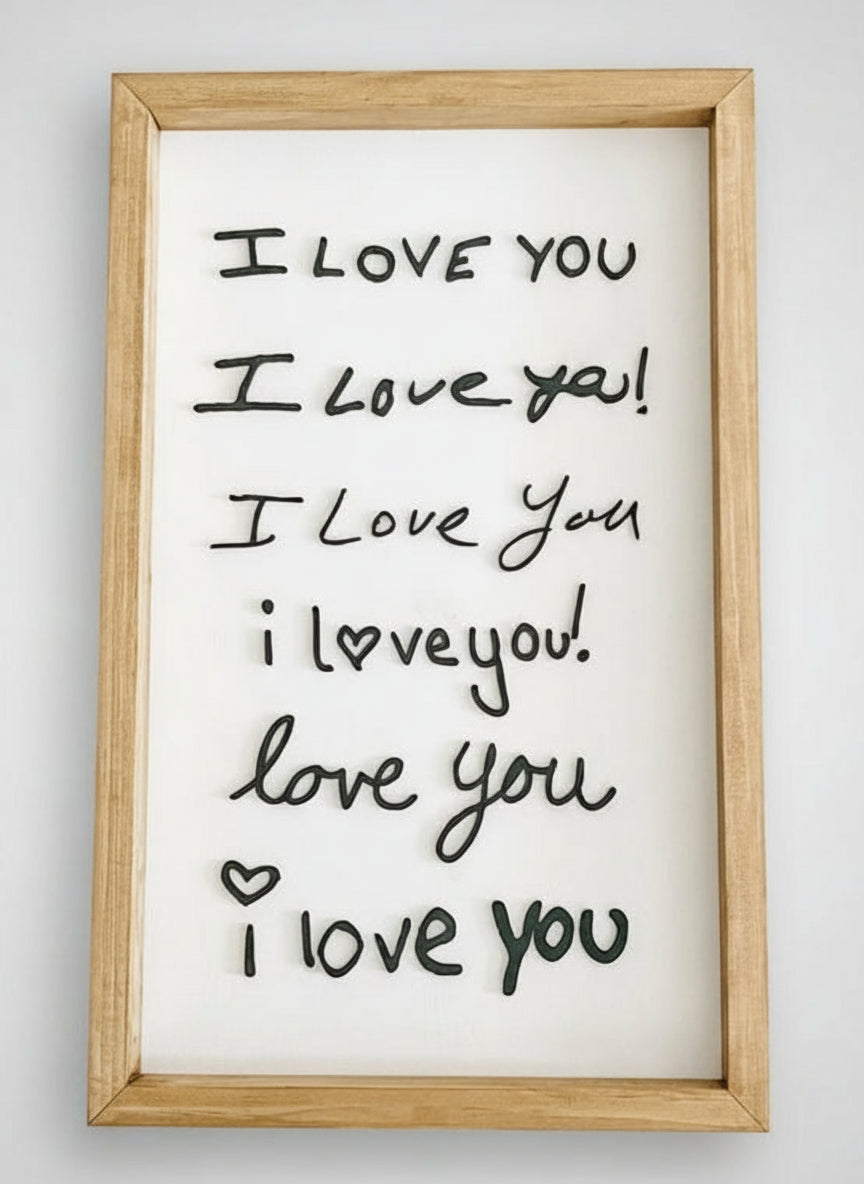 I LOVE YOU
I Love ya!
I Love You
i l♡ve you!
love you
i love you